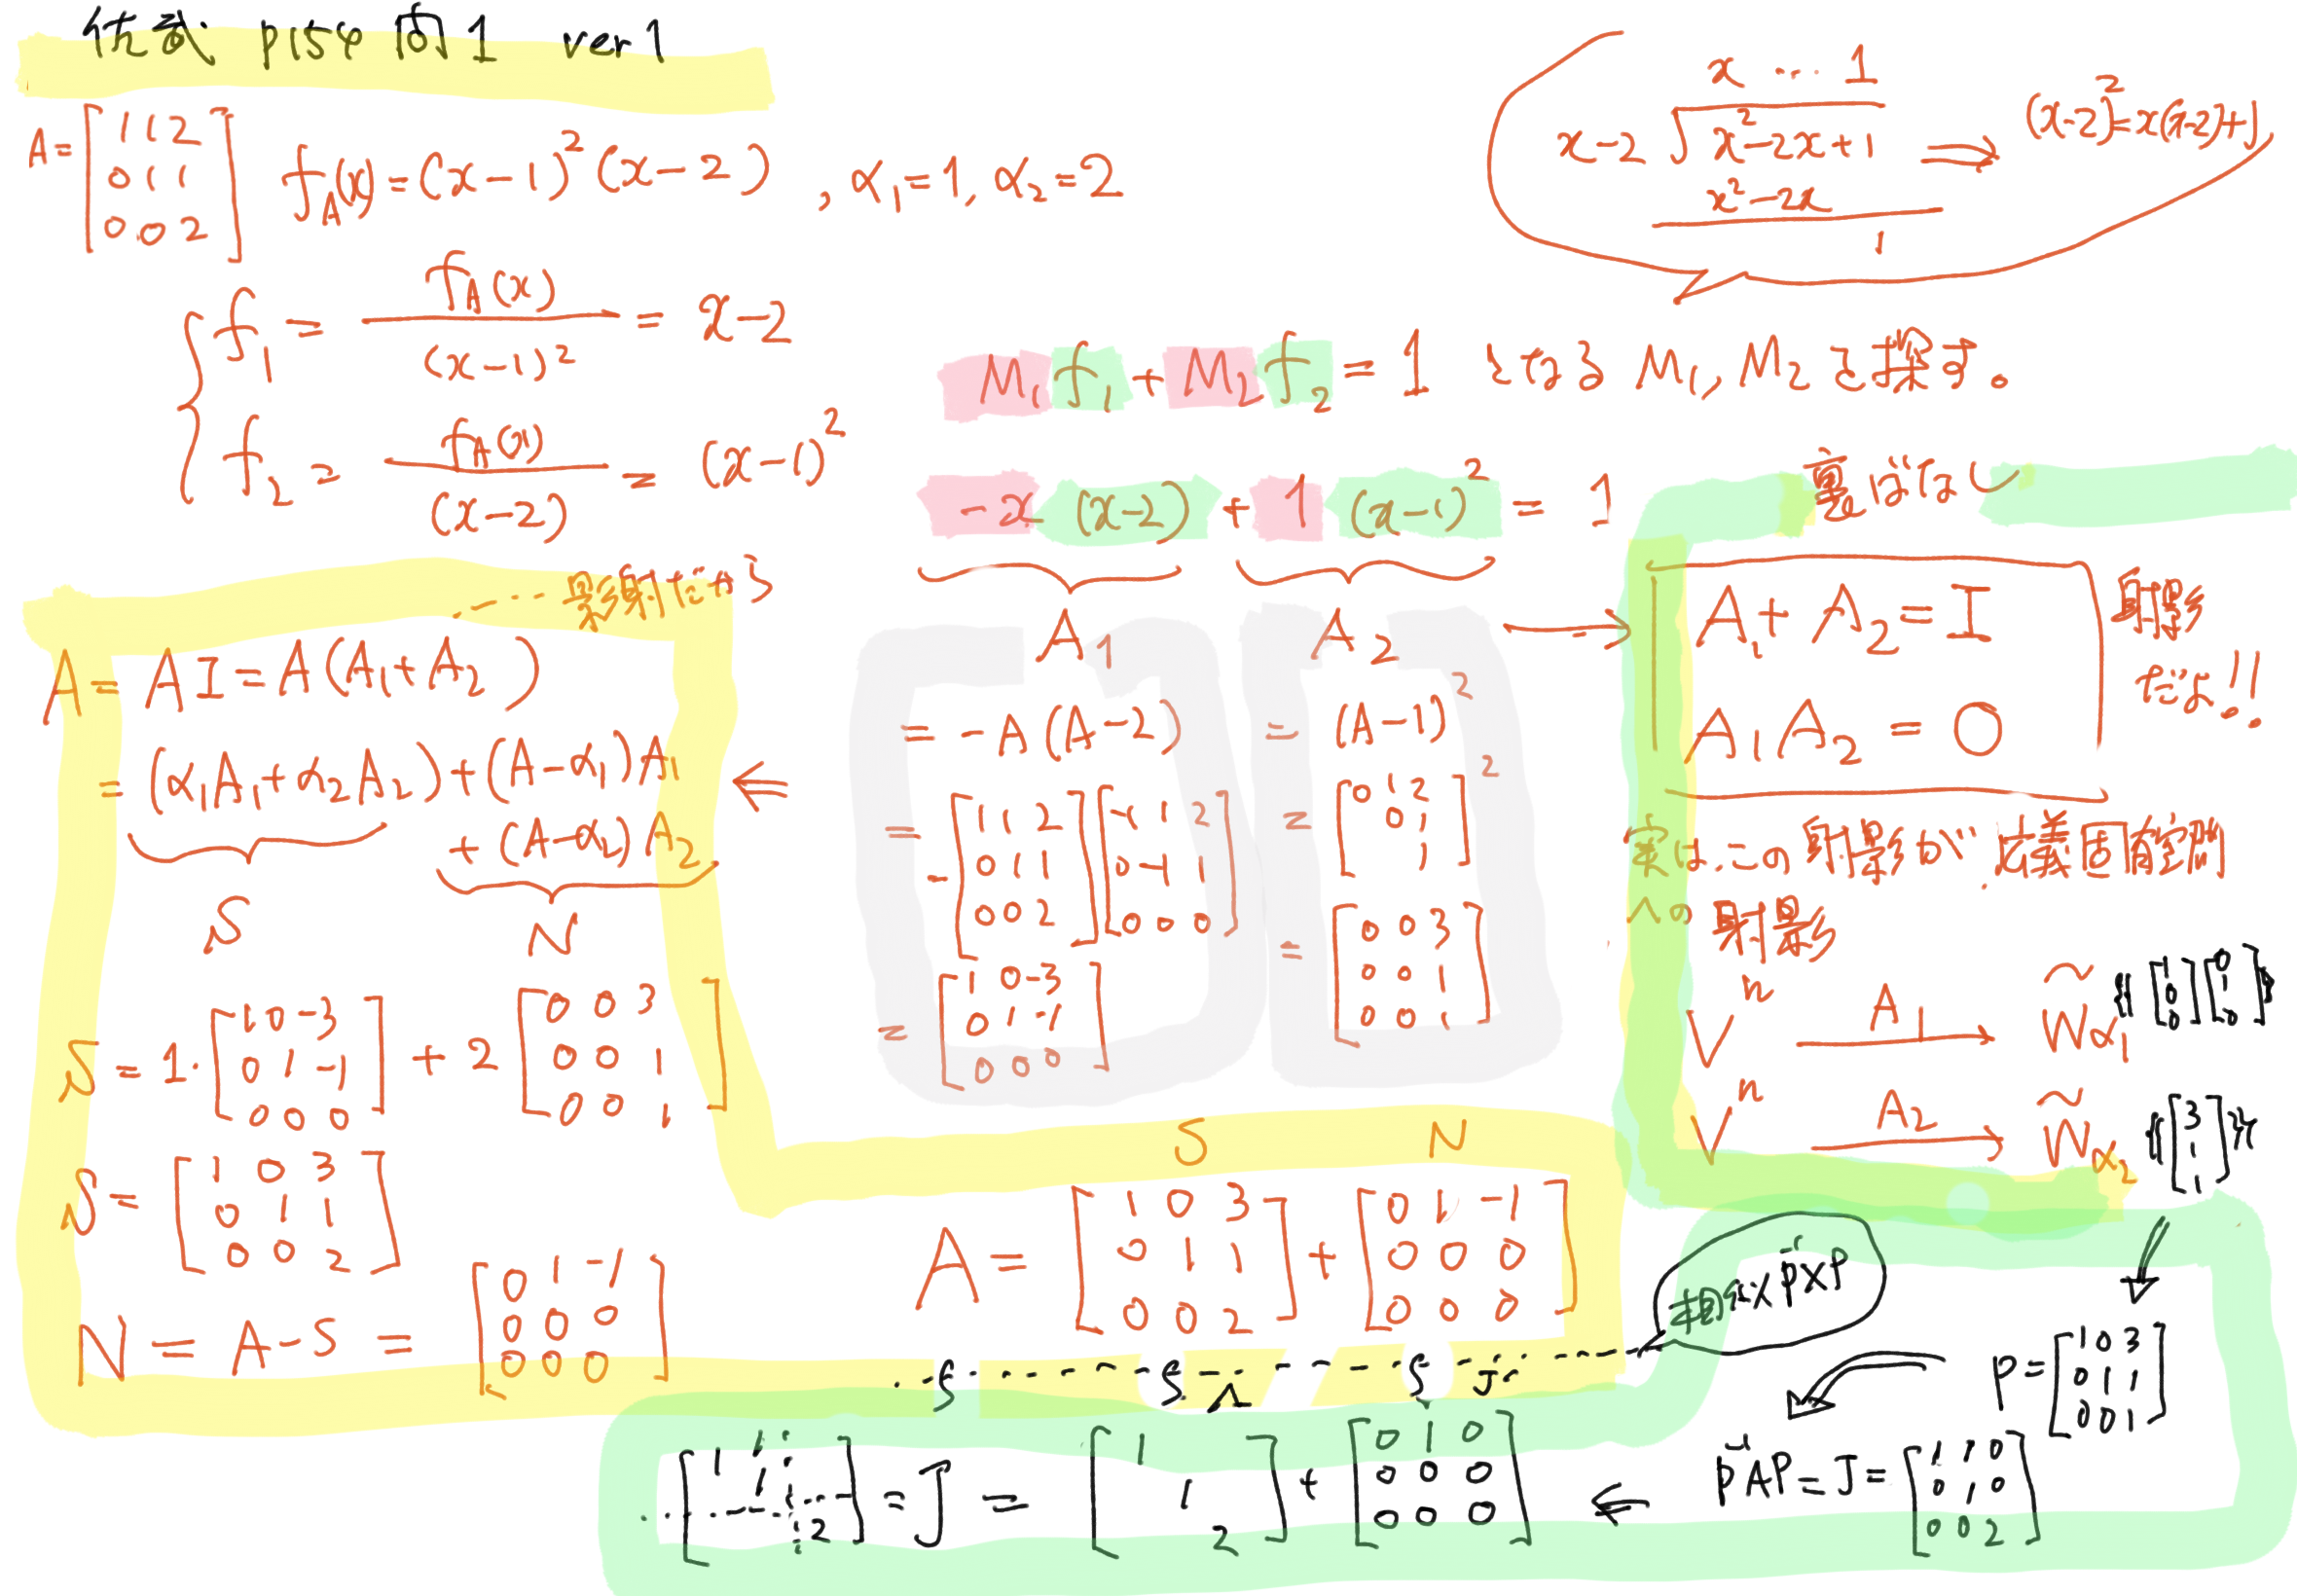 佐武 p154 問1 ver1
A = [1 1 2
0 1 1
0 0 2]
f_A(x) = (x-1)^2 (x-2) , α_1=1, α_2=2
f_1 = f_A(x) / (x-1)^2 = x-2
f_2 = f_A(x) / (x-2) = (x-1)^2
x … 1
x-2 √ x^2-2x+1 ⇒ (x-2)^2=x(x-2)+1
x^2-2x
1
M_1 f_1 + M_2 f_2 = 1 となる M_1, M_2 を探す。
-x (x-2) + 1 (x-1)^2 = 1
A_1
= -A(A-2)
= -[1 1 2
0 1 1
0 0 2] [-1 1 2
0 -1 1
0 0 0]
= [1 0 -3
0 1 -1
0 0 0]
A_2
= (A-1)^2
= [0 1 2
0 1
1]^2
= [0 0 3
0 0 1
0 0 1]
裏ばなし
→ A_1 + A_2 = I
A_1 A_2 = O
射影
だよ!!
実は、この射影が、広義固有空間
への射影
V^n A_1 → W̃_α1 {{ [1 0 0] [0 1 0] }}
V^n A_2 → W̃_α2 {{ [3 1 1] }}
.---- 影射だから
A = AI = A(A_1+A_2)
= (α_1A_1+α_2A_2) + (A-α_1)A_1 ⇐
+ (A-α_2)A_2
S N
S = 1·[1 0 -3
0 1 -1
0 0 0] + 2 [0 0 3
0 0 1
0 0 1]
S = [1 0 3
0 1 1
0 0 2]
N = A-S = [0 1 -1
0 0 0
0 0 0]
S N
A = [1 0 3
0 1 1
0 0 2] + [0 1 -1
0 0 0
0 0 0]
P^-1 X P
P = [1 0 3
0 1 1
0 0 1]
P^-1 AP = J = [1 1 0
0 1 0
0 0 2]
[1 1
1
2] = J = [1
1
2] + [0 1 0
0 0 0
0 0 0] ⇐